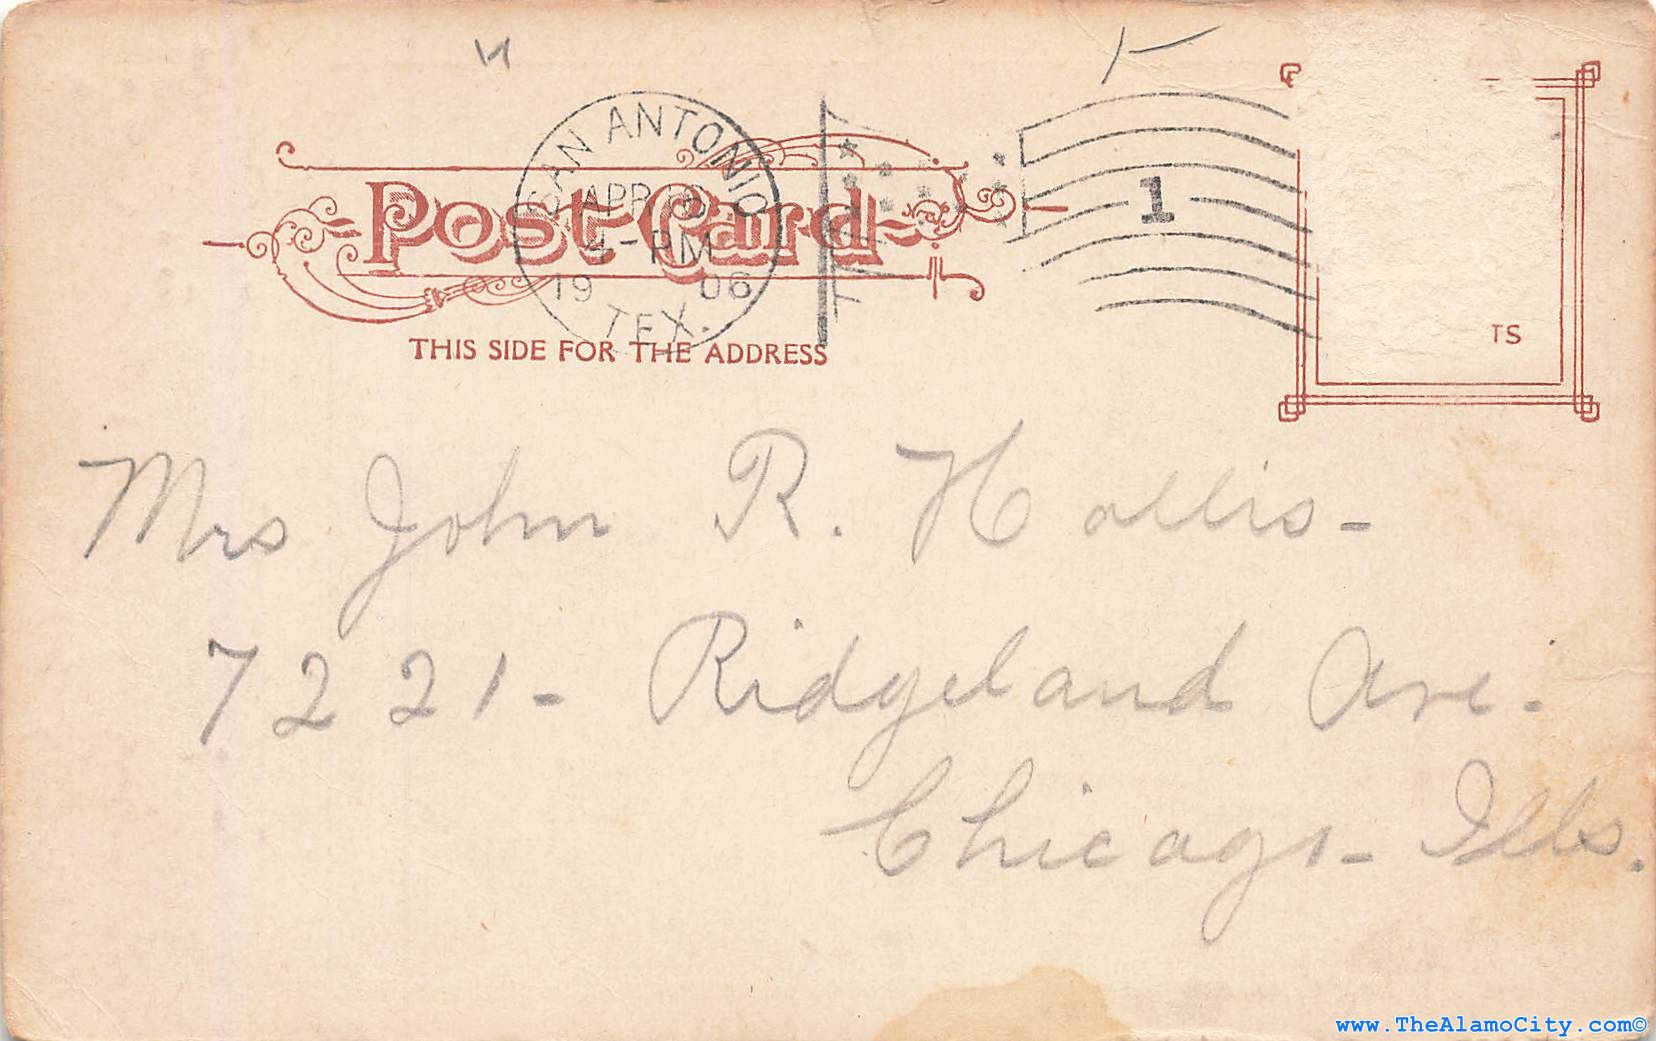 SAN ANTONIO
APR
4-PM
1906
TEX.
1
Post Card
THIS SIDE FOR THE ADDRESS
TS
Mrs John R. Hollis-
7221- Ridgeland Ave.
Chicago- Ills.
www.TheAlamoCity.com©